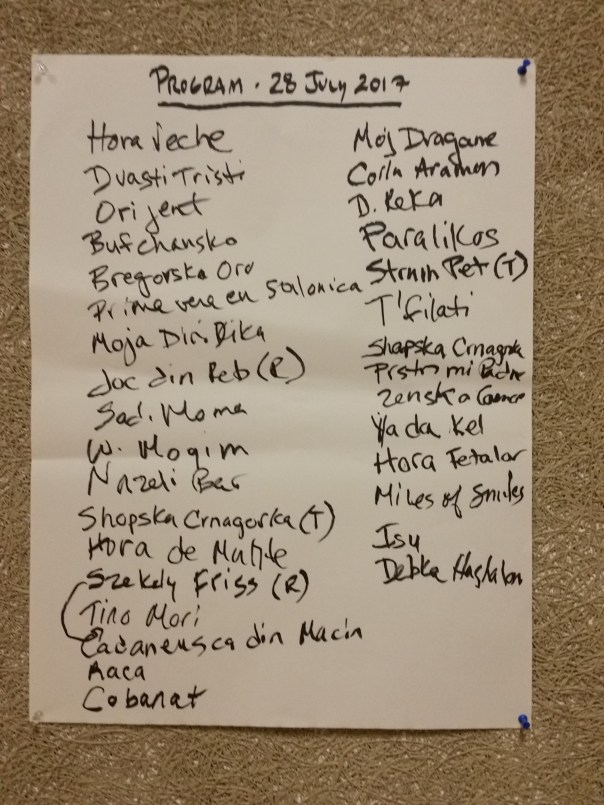 PROGRAM . 28 JULY 2017
Hora Veche
Dvasti Tristi
Orijent
Bufchansko
Bregovska Oro
Prima vera en Salonica
Moja Diri Dika
Joc din Beb (R)
Sadi Moma
W. Mogim
Nazeli Bar
Shopska Crnagorka (T)
Hora de
Szekely Friss (R)
Tino Mori
Cadaneasca din Macin
Raca
Cobanat
Moj Dragane
Corlu Aramon
D. Reka
Paralikos
Pet (T)
T'filati
Shapska Crnagrka
mi Padre
Zenska
Yada Kel
Hora Fetalor
Miles of Smiles
Isu
Debka